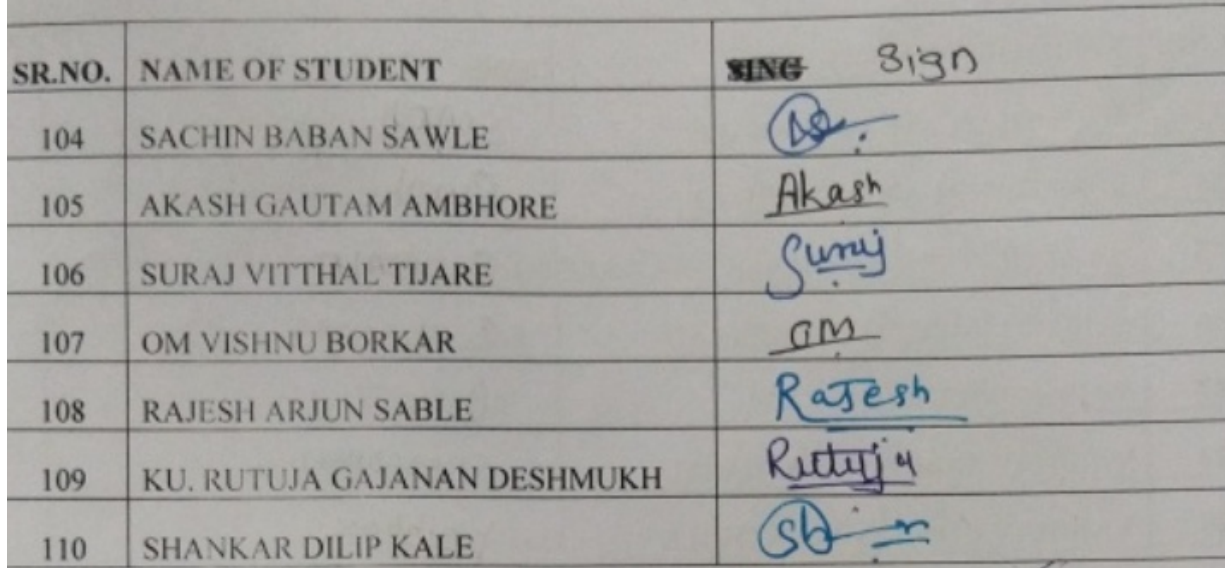 SR.NO. NAME OF STUDENT SING Sign
104 SACHIN BABAN SAWLE
105 AKASH GAUTAM AMBHORE Akash
106 SURAJ VITTHAL TIJARE Suraj
107 OM VISHNU BORKAR OM
108 RAJESH ARJUN SABLE RaJesh
109 KU. RUTUJA GAJANAN DESHMUKH Rutuja
110 SHANKAR DILIP KALE